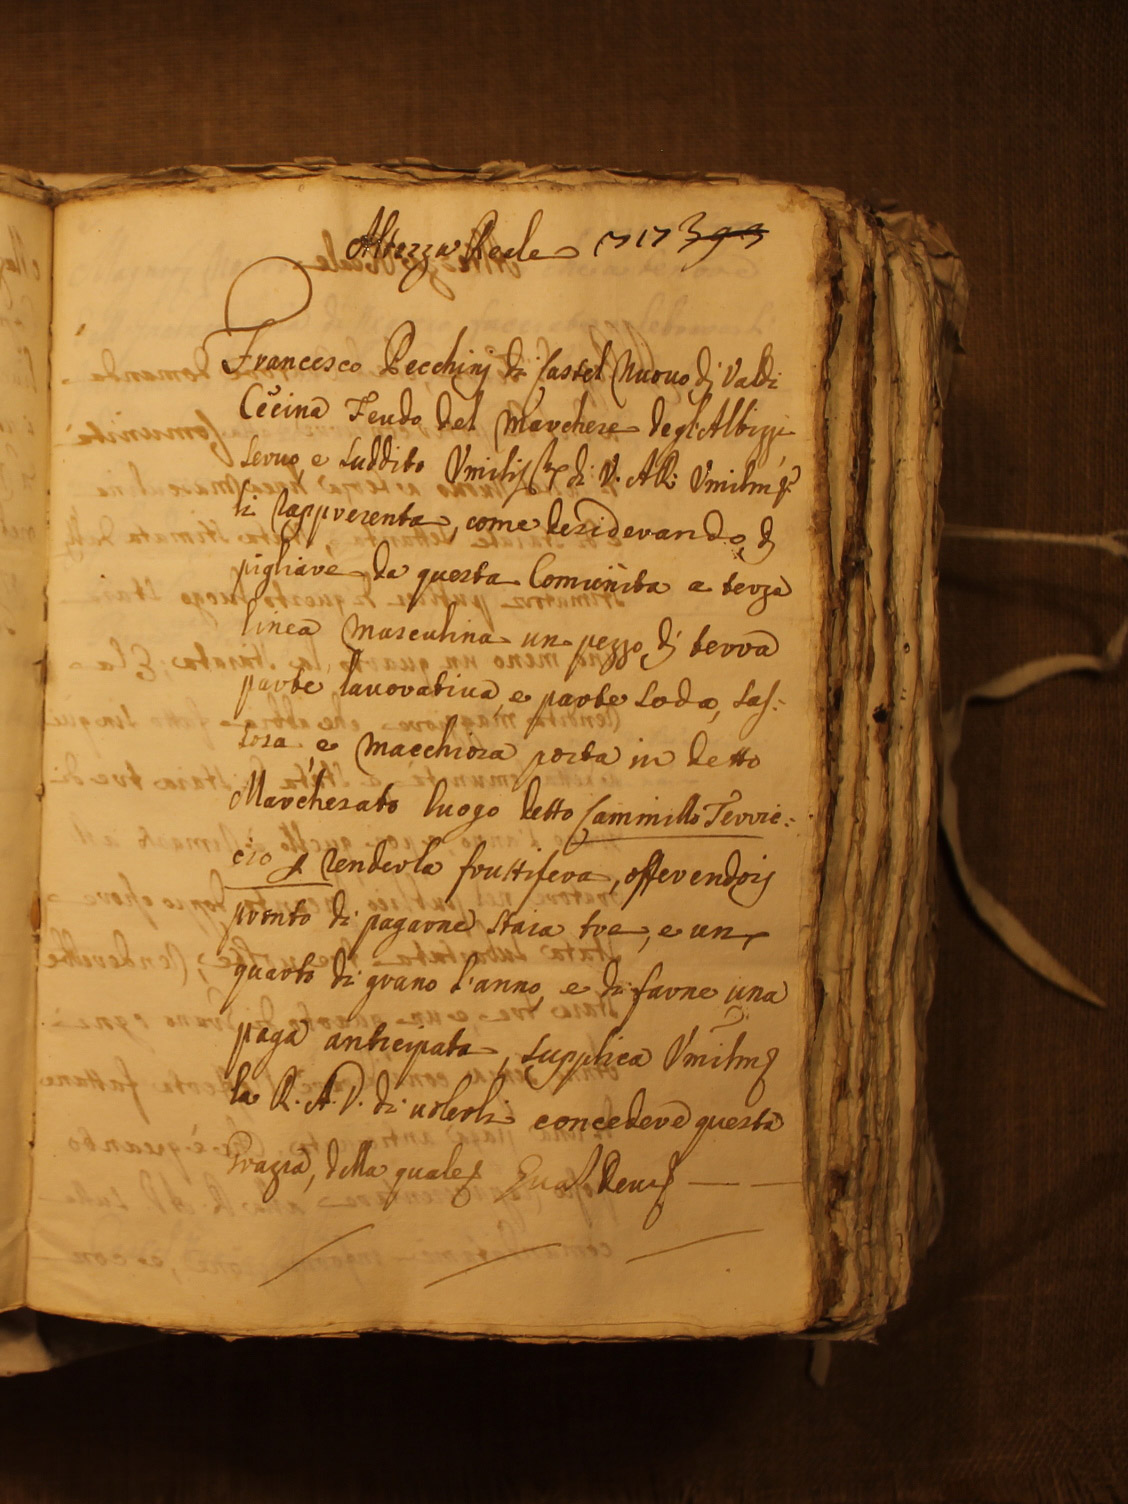 Altezza Reale
Francesco Pecchinj di Castel Nuouo di Valdi
Cecina Feudo del Marchese degl'Albizzi
seruo, e suddito Vmiliss.º di V. A R: Vmilmẽ
li rappresenta, come desiderando di
pigliare da questa Comunita a terza
linea masculina un pezzo di terra
parte lauoratiua, e parte soda, sas:
sosa e macchiosa posta in detto
Marchesato luogo detto Cammillo Terric:
cio p renderla fruttifera, offerendosi
pronto di pagarne staia tre, e un
quarto di grano l'anno, e di farne una
paga anticipata, supplica Vmilmẽ
la R. A. V. di uolerli concedere questa
Grazia, della quale Quas Deus